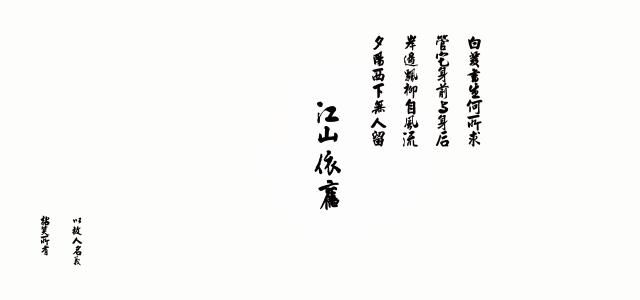 白髮書生何所求
管它身前与身后
岸邊飄柳自風流
夕陽西下無人留
江山依舊
以故人名義
拈笑所有